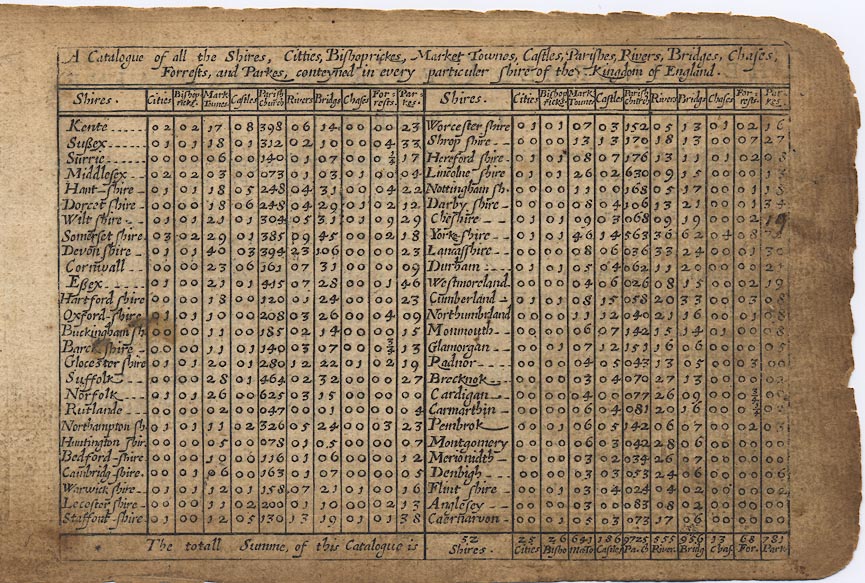 A Catalogue of all the Shires, Citties, Bishoprickes, Market Townes, Castles, Parishes, Rivers, Bridges, Chases,
Forrests, and Parkes, conteyned in every particuler shire of the Kingdom of England.
Shires. Cities Bishopricks. Mark Townes Castles Parish Church Rivers Bridgs Chases Forrests. Parkes. Shires. Cities Bishopricks. Mark Townes Castles Parish Church Rivers Bridgs Chases Forrests. Parkes.
Kente 02 02 17 08 398 06 14 00 00 23 Worcester shire 01 01 07 03 152 05 13 01 02 16
Sußex 01 01 18 01 312 02 10 00 04 33 Shrop shire 00 00 13 13 170 18 13 00 07 27
Surrie 00 00 06 00 140 01 07 00 17 Hereford shire 01 01 08 07 176 13 11 01 02 08
Middlesex 02 01 03 00 073 01 03 01 00 04 Lincolne shire 01 01 26 02 630 09 15 00 00 13
Hant-shire 01 01 18 05 248 04 31 00 04 22 Nottingham sh. 00 00 11 00 168 05 17 00 01 18
Dorcet shire 00 00 18 06 248 04 29 01 02 12 Darby shire 00 00 08 04 106 13 21 00 01 34
Wilt shire 01 01 21 01 304 05 31 01 09 29 Cheshire 01 01 09 03 068 09 19 00 02 19
Somerset shire 03 02 29 01 385 09 45 00 02 18 York-shire 01 01 46 14 563 36 62 04 08
Devon shire 01 01 40 03 394 23 106 00 00 23 Lancasshire 00 00 08 06 036 33 24 00 01 30
Cornwall 00 00 23 06 161 07 31 00 00 09 Durham 01 01 05 04 062 11 20 00 00 21
Eßex 01 00 21 01 415 07 28 00 01 46 Westmoreland 00 00 04 06 026 08 15 00 02 19
Hartford shire 00 00 18 00 120 01 24 00 00 23 Cumberland 01 01 08 15 058 20 33 00 03 08
Oxford-shire 01 01 10 00 208 03 26 00 04 09 Northumbrland 00 00 11 12 040 21 16 00 01
Buckingham sh. 00 00 11 00 185 02 14 00 00 15 Monmouth 00 00 06 07 142 15 14 01 00 08
Barck shire 00 00 11 01 140 03 07 00 13 Glamorgan 00 01 07 12 151 16 06 00 00
Glocester shire 01 01 20 01 280 12 22 01 02 19 Radnor 00 00 04 05 043 13 05 00 03 00
Suffolk 00 00 28 01 464 02 32 00 00 27 Brecknok 00 00 03 04 070 27 13 00 00
Norfolk 01 01 26 00 625 03 15 00 00 00 Cardigan 00 00 04 00 077 26 09 00 00
Rutlande 00 00 02 00 047 01 01 00 00 04 Carmarthin 00 00 06 04 081 20 16 00 02
Northampton sh. 01 01 11 02 326 05 24 00 03 23 Pembrok 00 01 06 05 142 06 07 00 02 03
Huntington shir. 00 00 05 00 078 01 05 00 00 07 Montgomery 00 00 06 03 042 28 06 00 00 00
Bedford-shire 00 00 10 00 116 01 06 00 00 12 Merionidth 00 00 03 02 034 26 07 00 00 00
Cambridg-shire. 00 01 06 00 163 01 07 00 00 05 Denbigh 00 00 03 03 053 24 06 00 00
Warwick shire 01 01 12 01 158 07 21 01 00 16 Flint shire 01 03 04 024 04 02 00 00 00
Lecester shire 00 00 11 02 200 01 10 00 02 13 Anglesey 00 00 03 00 083 08 02 00 00 00
Staffort-shire 01 00 12 05 130 13 19 01 01 38 Caernarvon 01 05 03 073 17 06 00 00 00
The totall Summe, of this Catalogue is 52 Shires. 25 Cities 26 Bisho 641 Ma.To. 186 Castles 9725 Pa.ch 555 River. 956 Bridg 13 Chas. 68 For. 781 Park